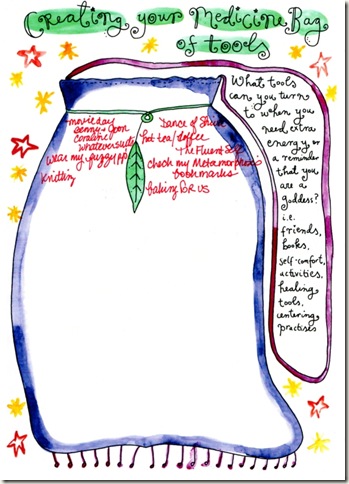 Creating your Medicine Bag
of tools
movie day
benny + Joon
coraline
whatever suits
wear my fuzzy PJs
knitting
Dance of Shiva
hot tea / toffee
The Fluent Self
check my Metamorphosis
bookmarks
baking for us
What tools
can you turn
to when you
need extra
energy, or
a reminder
that you
are a
goddess?
i.e.
friends,
books,
self-comfort,
activities,
healing
tools,
centering
practises